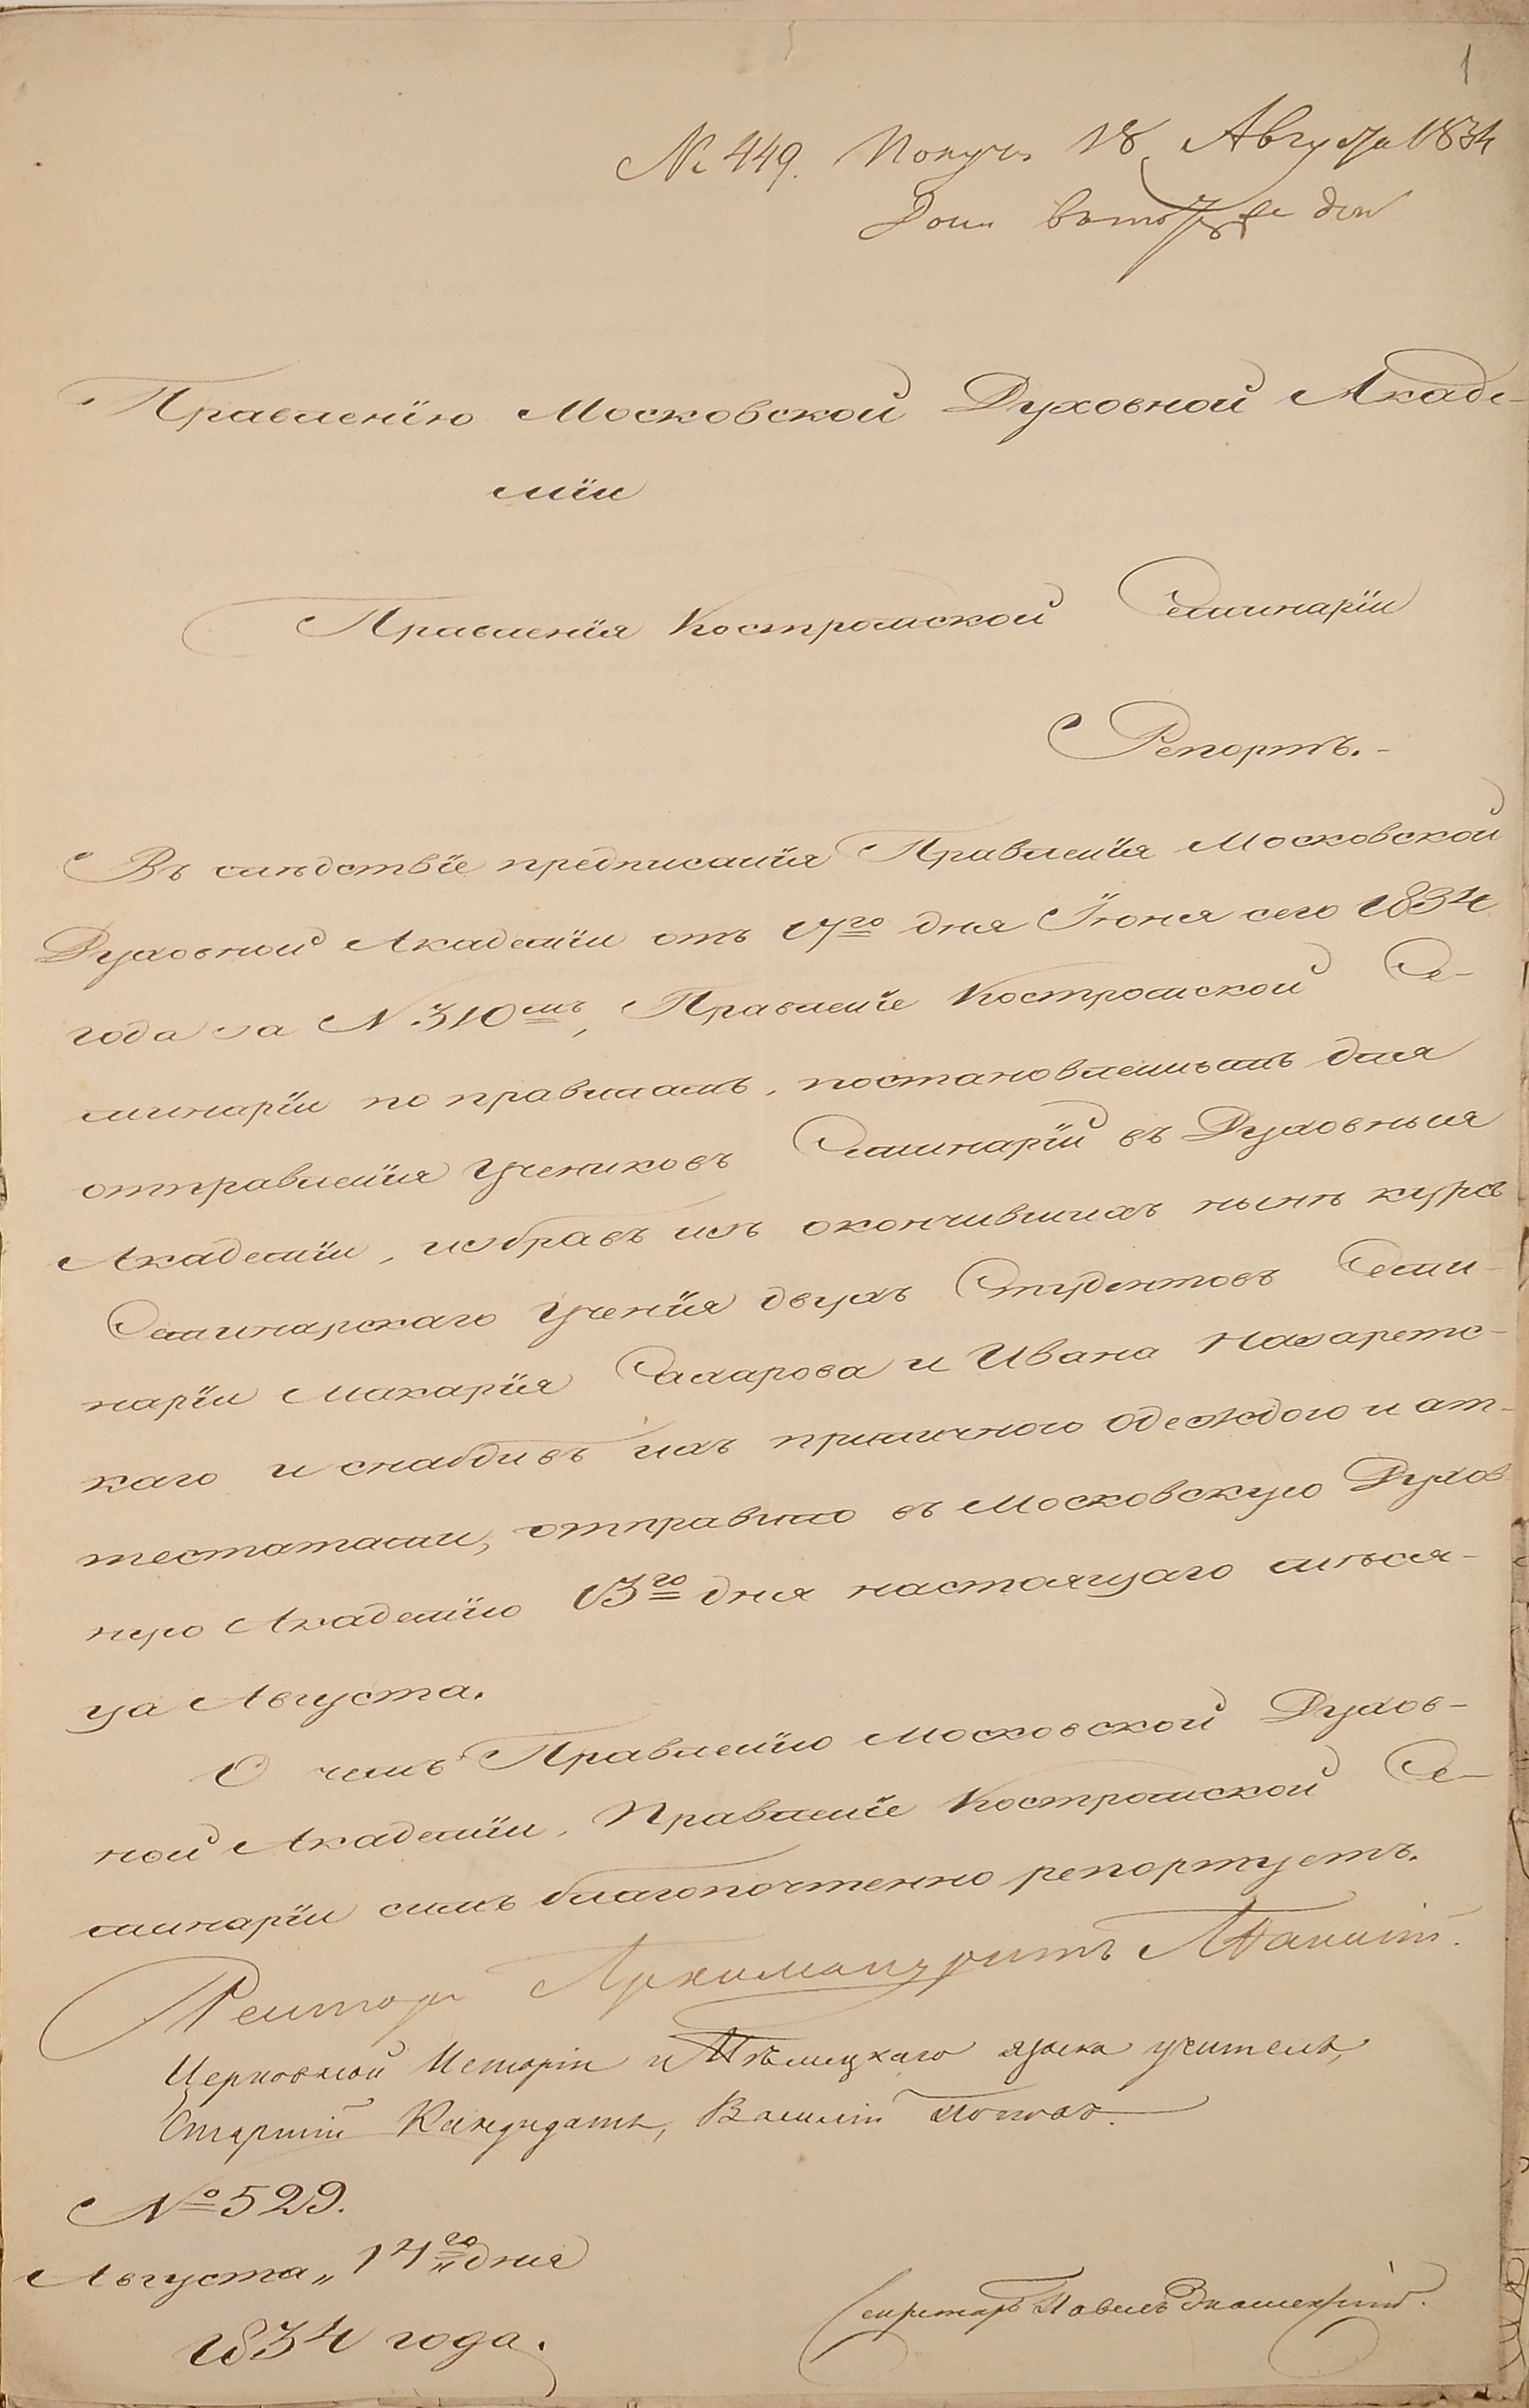 1
№ 449. Получ. 18 Августа 1834
Правленїю Московской Духовной Акаде-
мїи
Правленїя Костромской Семинарїи
Репортъ.-
Въ слѣдствїе предписанїя Правленїя Московской
Духовной Академїи отъ 17го дня Їюня сего 1834
года за N. 310мъ, Правленїе Костромской Се-
минарїи по правиламъ, постановленнымъ для
отправленїя Учениковъ Семинарїй въ Духовныя
Академїи, избравъ изъ окончившихъ нынѣ курсъ
Семинарскаго Ученїя двухъ Студентовъ Семи-
нарїи Макарїя Сахарова и Ивана Назаретс-
каго и снабдивъ ихъ приличною одеждою и ат-
тестатами, отправило въ Московскую Духов
ную Академїю 13го дня настоящаго мѣся-
ца Августа.
О чемъ Правленїю Московской Духов-
ной Академїи, Правленїе Костромской Се-
минарїи симъ благопочтенно репортуетъ.
Ректоръ Архимандритъ Аѳанасій.
Церковной Исторіи и Нѣмецкаго языка учитель,
Старшій Кандидатъ, Василій Попов.
№ 529.
Августа „ 14го „ дня
1834 года.
Секретарь Павелъ Знаменскій.